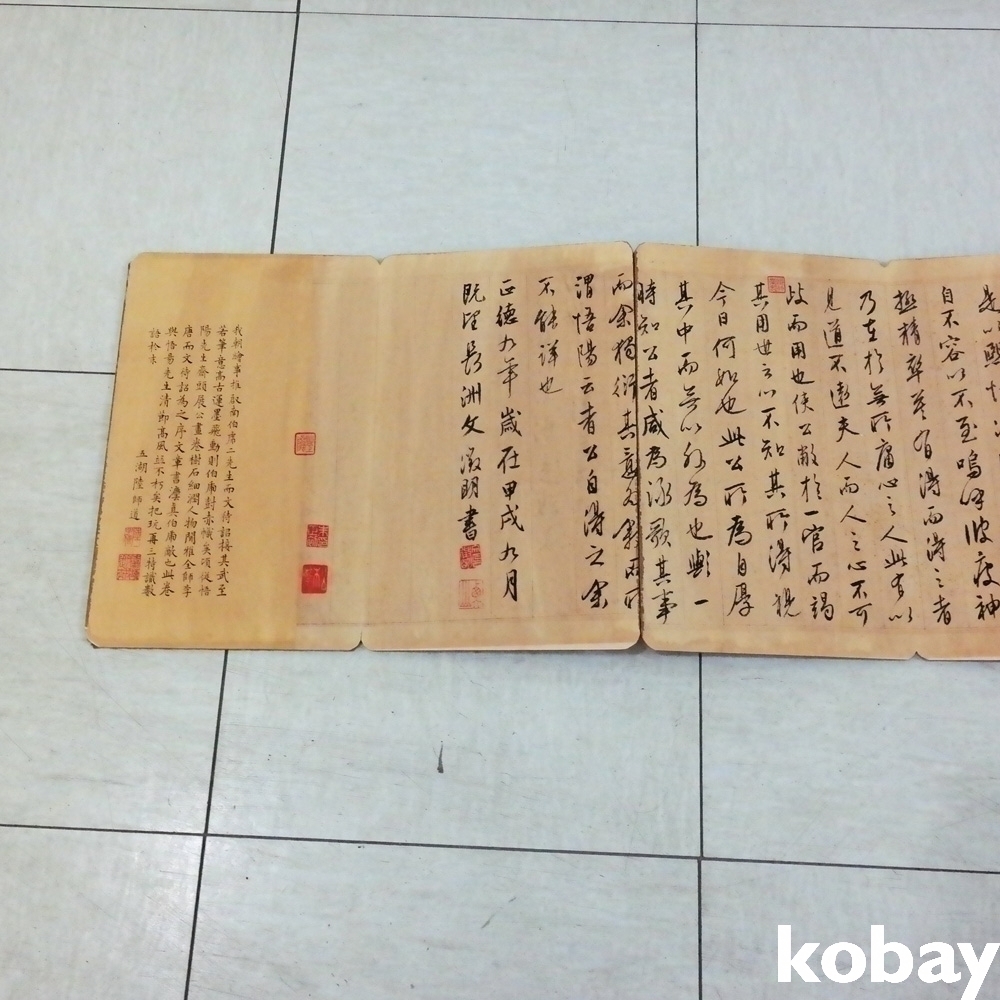 自不容以不至嗚呼彼疲神
極精卒莫有得而得之者
乃在於無所庸心之人此有以
見道不遠夫人而人之心不可
歧而用也使公敝於一官而竭
其用世之心不知其所得視
今日何如也此公所為自厚
其中而無以外為也歟一
時知公者咸為詠歌其事
而余獨衍其意
謂悟陽云者公自得之余
不能詳也
正德九年歲在甲戌九月
既望長洲文徵明書
我朝繪事推
若筆意高古運墨飛動則
陽先生齋頭展公畫卷樹石細潤人物閒雅全師李
唐而文待詔為之序文章書法真伯虎敵也此卷
與悟陽先生清節高風並不朽矣把玩再三特識數
語於末
五湖陸師道
kobay